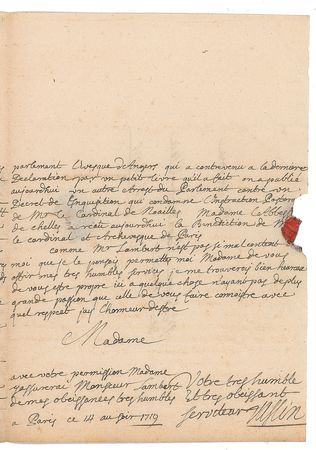 parlement L'evesque d'Angers qui a contrevenu a la derniere
Declaration par un petit livre qu'il a fait on a publié
aujourdhui un autre Arrest du Parlement contre un
Decret de L'inquisition qui condamne L'instruction Pastorale
de Mr le Cardinal de Noailles. Madame L'abbesse
de chelles a receu aujourdhui la Benediction de
le cardinal et Archevesque de Paris
comme Mr Lambert n'est pas je me contente
moi que je le permettes moi Madame de vous
offrir mes tres humbles je me trouverai bien heureux
de vous estre propre ici a quelque chose n'ayant pas de plus
grande passion que celle de vous faire connoistre avec
quel respect j'ay L'honneur d'estre
Madame
avec votre permission Madame
j'assurerai Monsieur Lambert
de mes obeissances tres humbles
a Paris ce 14 1719
Votre tres humble
Et tres obeissant
serviteur